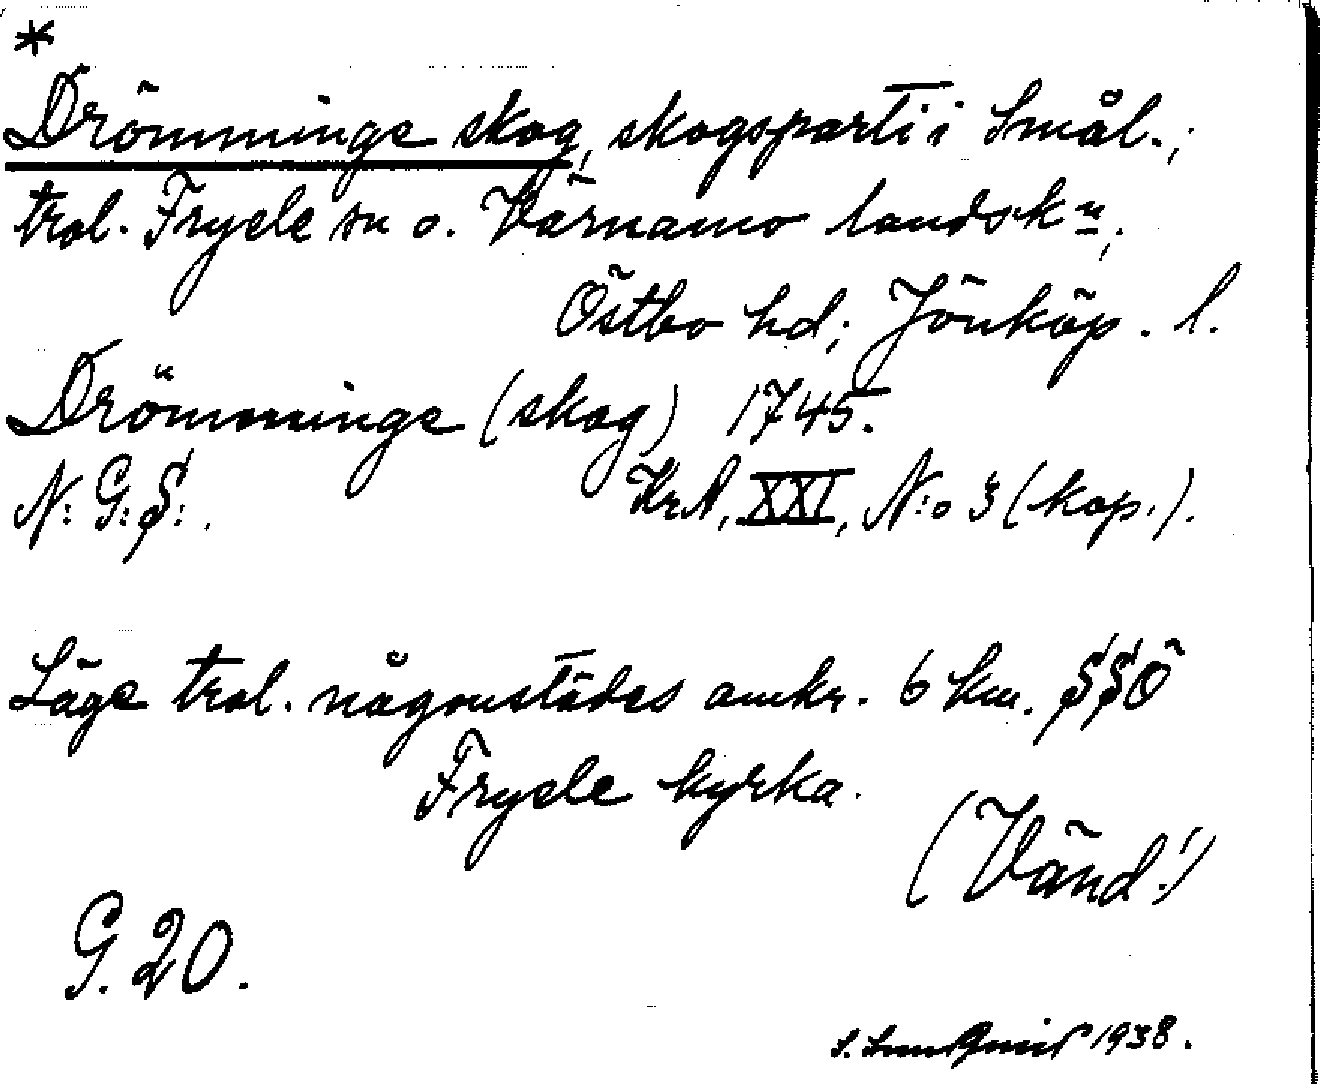 *
Drömminge skog, skogsparti i Smål.;
trol. Fryele sn o. Värnamo landskn,
Östbo hd; Jönköp. l.
Drömminge (skog) 1745.
N: G: S: . KrA, XXI, N:o 3 (kop.).
Läge trol. någonstädes omkr. 6 km. SSÖ
Fryele kyrka.
(Vänd!)
G. 20.
1938.